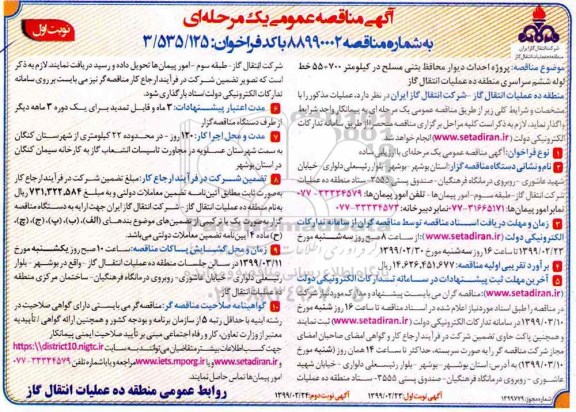 آگهی مناقصه عمومی یک مرحله‌ای
نوبت اول
به شماره مناقصه ۸۸۹۹۰۰۰۲ با کد فراخوان: ۳/۵۳۵/۱۲۵
شرکت انتقال گاز ایران
موضوع مناقصه: پروژه احداث دیوار محافظ بتنی مسلح در کیلومتر ۵۵۰+۷۰۰ خط
لوله ششم سراسری منطقه ده عملیات انتقال گاز
منطقه ده عملیات انتقال گاز – شرکت انتقال گاز ایران در نظر دارد، عملیات مذکور را با
مشخصات و شرایط کلی زیر از طریق مناقصه عمومی یک مرحله‌ای به پیمانکار واجد شرایط
واگذار نماید. لازم به ذکر است کلیه مراحل برگزاری مناقصه از طریق سامانه تدارکات
الکترونیکی دولت (www.setadiran.ir) انجام خواهد شد.
۱ نوع فراخوان: آگهی مناقصه عمومی یک مرحله‌ای با ارزیابی ساده
۲ نام و نشانی دستگاه مناقصه گزار: استان بوشهر- بوشهر- بلوار رئیسعلی دلواری- خیابان
شهید عاشوری – روبروی درمانگاه فرهنگیان – صندوق پستی ۳۵۵۵- ستاد منطقه ده عملیات
شرکت انتقال گاز – طبقه سوم – امور پیمان‌ها – تلفن امور پیمان‌ها: ۳۳۳۳۴۵۷۹-۰۷۷
نمابر امور پیمان‌ها: ۳۱۶۶۵۱۷۱-۰۷۷ نمابر دبیرخانه: ۳۳۳۳۴۵۷۳-۰۷۷
۳ زمان و مهلت دریافت اسناد مناقصه توسط مناقصه گران از سامانه تدارکات
الکترونیکی دولت (www.setadiran.ir): از ساعت ۸ صبح روز سه‌شنبه مورخ
۱۳۹۹/۰۲/۲۳ تا ساعت ۱۶ روز سه‌شنبه مورخ ۱۳۹۹/۰۲/۳۰
۴ برآورد تقریبی اولیه مناقصه: ۱۴,۶۲۶,۴۵۱,۶۷۷ ریال
۵ آخرین مهلت ثبت پیشنهادات در سامانه تدارکات الکترونیکی دولت
(www.setadiran.ir): مناقصه گران می بایست پیشنهاد و مدارک مورد نیاز شرکت
در مناقصه را طبق اسناد مورد نیاز اعلام شده در اسناد مناقصه تا ساعت ۱۶ روز شنبه مورخ
۱۳۹۹/۰۳/۱۰ در سامانه تدارکات الکترونیکی دولت (www.setadiran.ir) ثبت نمایند
و همچنین پاکت حاوی تضمین شرکت در فرآیند ارجاع کار و گواهی امضای صاحبان امضای
مجاز شرکت مناقصه گر را به صورت سربسته، حداکثر تا ساعت ۱۴ همان روز (شنبه مورخ
۱۳۹۹/۰۳/۱۰) به آدرس: استان بوشهر – بوشهر – بلوار رئیسعلی دلواری – خیابان شهید
عاشوری – روبروی درمانگاه فرهنگیان – صندوق پستی ۳۵۵۵- ستاد منطقه ده عملیات
شرکت انتقال گاز – طبقه سوم – امور پیمان‌ها تحویل داده و رسید دریافت نمایند. لازم به ذکر
است که تصویر تضمین شرکت در فرآیند ارجاع کار مناقصه گر نیز می بایست بر روی سامانه
تدارکات الکترونیکی دولت ستاد بارگذاری شود.
۶ مدت اعتبار پیشنهادات: ۳ ماه و قابل تمدید برای یک دوره ۳ ماهه دیگر
از طرف دستگاه مناقصه گزار
۷ مدت و محل اجرا کار: ۱۲۰ روز – در محدوده ۲۲ کیلومتری از شهرستان کنگان
به سمت شهرستان عسلویه در مجاورت تاسیسات انشعاب گاز به کارخانه سیمان کنگان
در استان بوشهر
۸ تضمین شرکت در فرآیند ارجاع کار: مبلغ تضمین شرکت در فرآیند ارجاع کار
به صورت ثابت مطابق آئین‌نامه تضمین معاملات دولتی و به مبلغ ۷۳۱,۳۲۲,۵۸۴ ریال
به نام منطقه ده عملیات انتقال گاز – شرکت انتقال گاز ایران جهت ارایه به دستگاه مناقصه
گزار به صورت یک یا ترکیبی از تضمین‌های موضوع بندهای (الف)، (ب)، (پ)، (ج)، (چ)،
(ح) ماده ۴ آیین‌نامه تضمین معاملات دولتی می‌باشد.
۹ زمان و محل گشایش پاکات مناقصه: ساعت ۱۰ صبح روز یکشنبه مورخ
۱۳۹۹/۰۳/۱۱ در سالن جلسات منطقه ده عملیات انتقال گاز – واقع در بوشهر – بلوار
رئیسعلی دلواری – خیابان عاشوری – روبروی درمانگاه فرهنگیان – ساختمان مرکزی منطقه
ده عملیات انتقال گاز
۱۰ گواهینامه صلاحیت مناقصه گر: مناقصه گر می بایستی دارای گواهی صلاحیت در
رشته ابنیه با حداقل رتبه ۵ از سازمان برنامه و بودجه کشور و همچنین ارائه گواهی / تأییدیه
معتبر از وزارت تعاون، کار و رفاه اجتماعی مبنی بر تأیید صلاحیت ایمنی پیمانکار
جهت کسب اطلاعات بیشتر متقاضیان می‌توانند به سایت https://district10.nigtc.ir
و www.setadiran.ir و www.iets.mporg.ir مراجعه و یا با شماره تلفن ۳۳۳۳۴۵۷۹-۰۷۷
امور پیمان‌ها تماس حاصل نمایند.
روابط عمومی منطقه ده عملیات انتقال گاز
شماره مجوز: ۱۳۹۹۷۷۹
آگهی نوبت اول: ۱۳۹۹/۰۲/۲۳
آگهی نوبت دوم: ۱۳۹۹/۰۲/۲۴